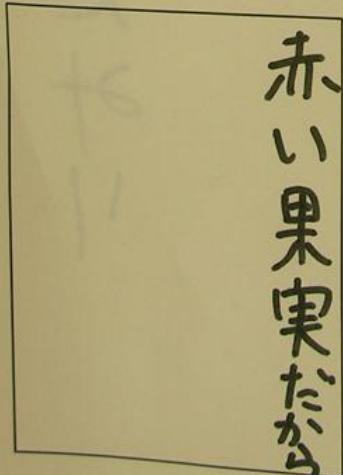 赤い果実だから